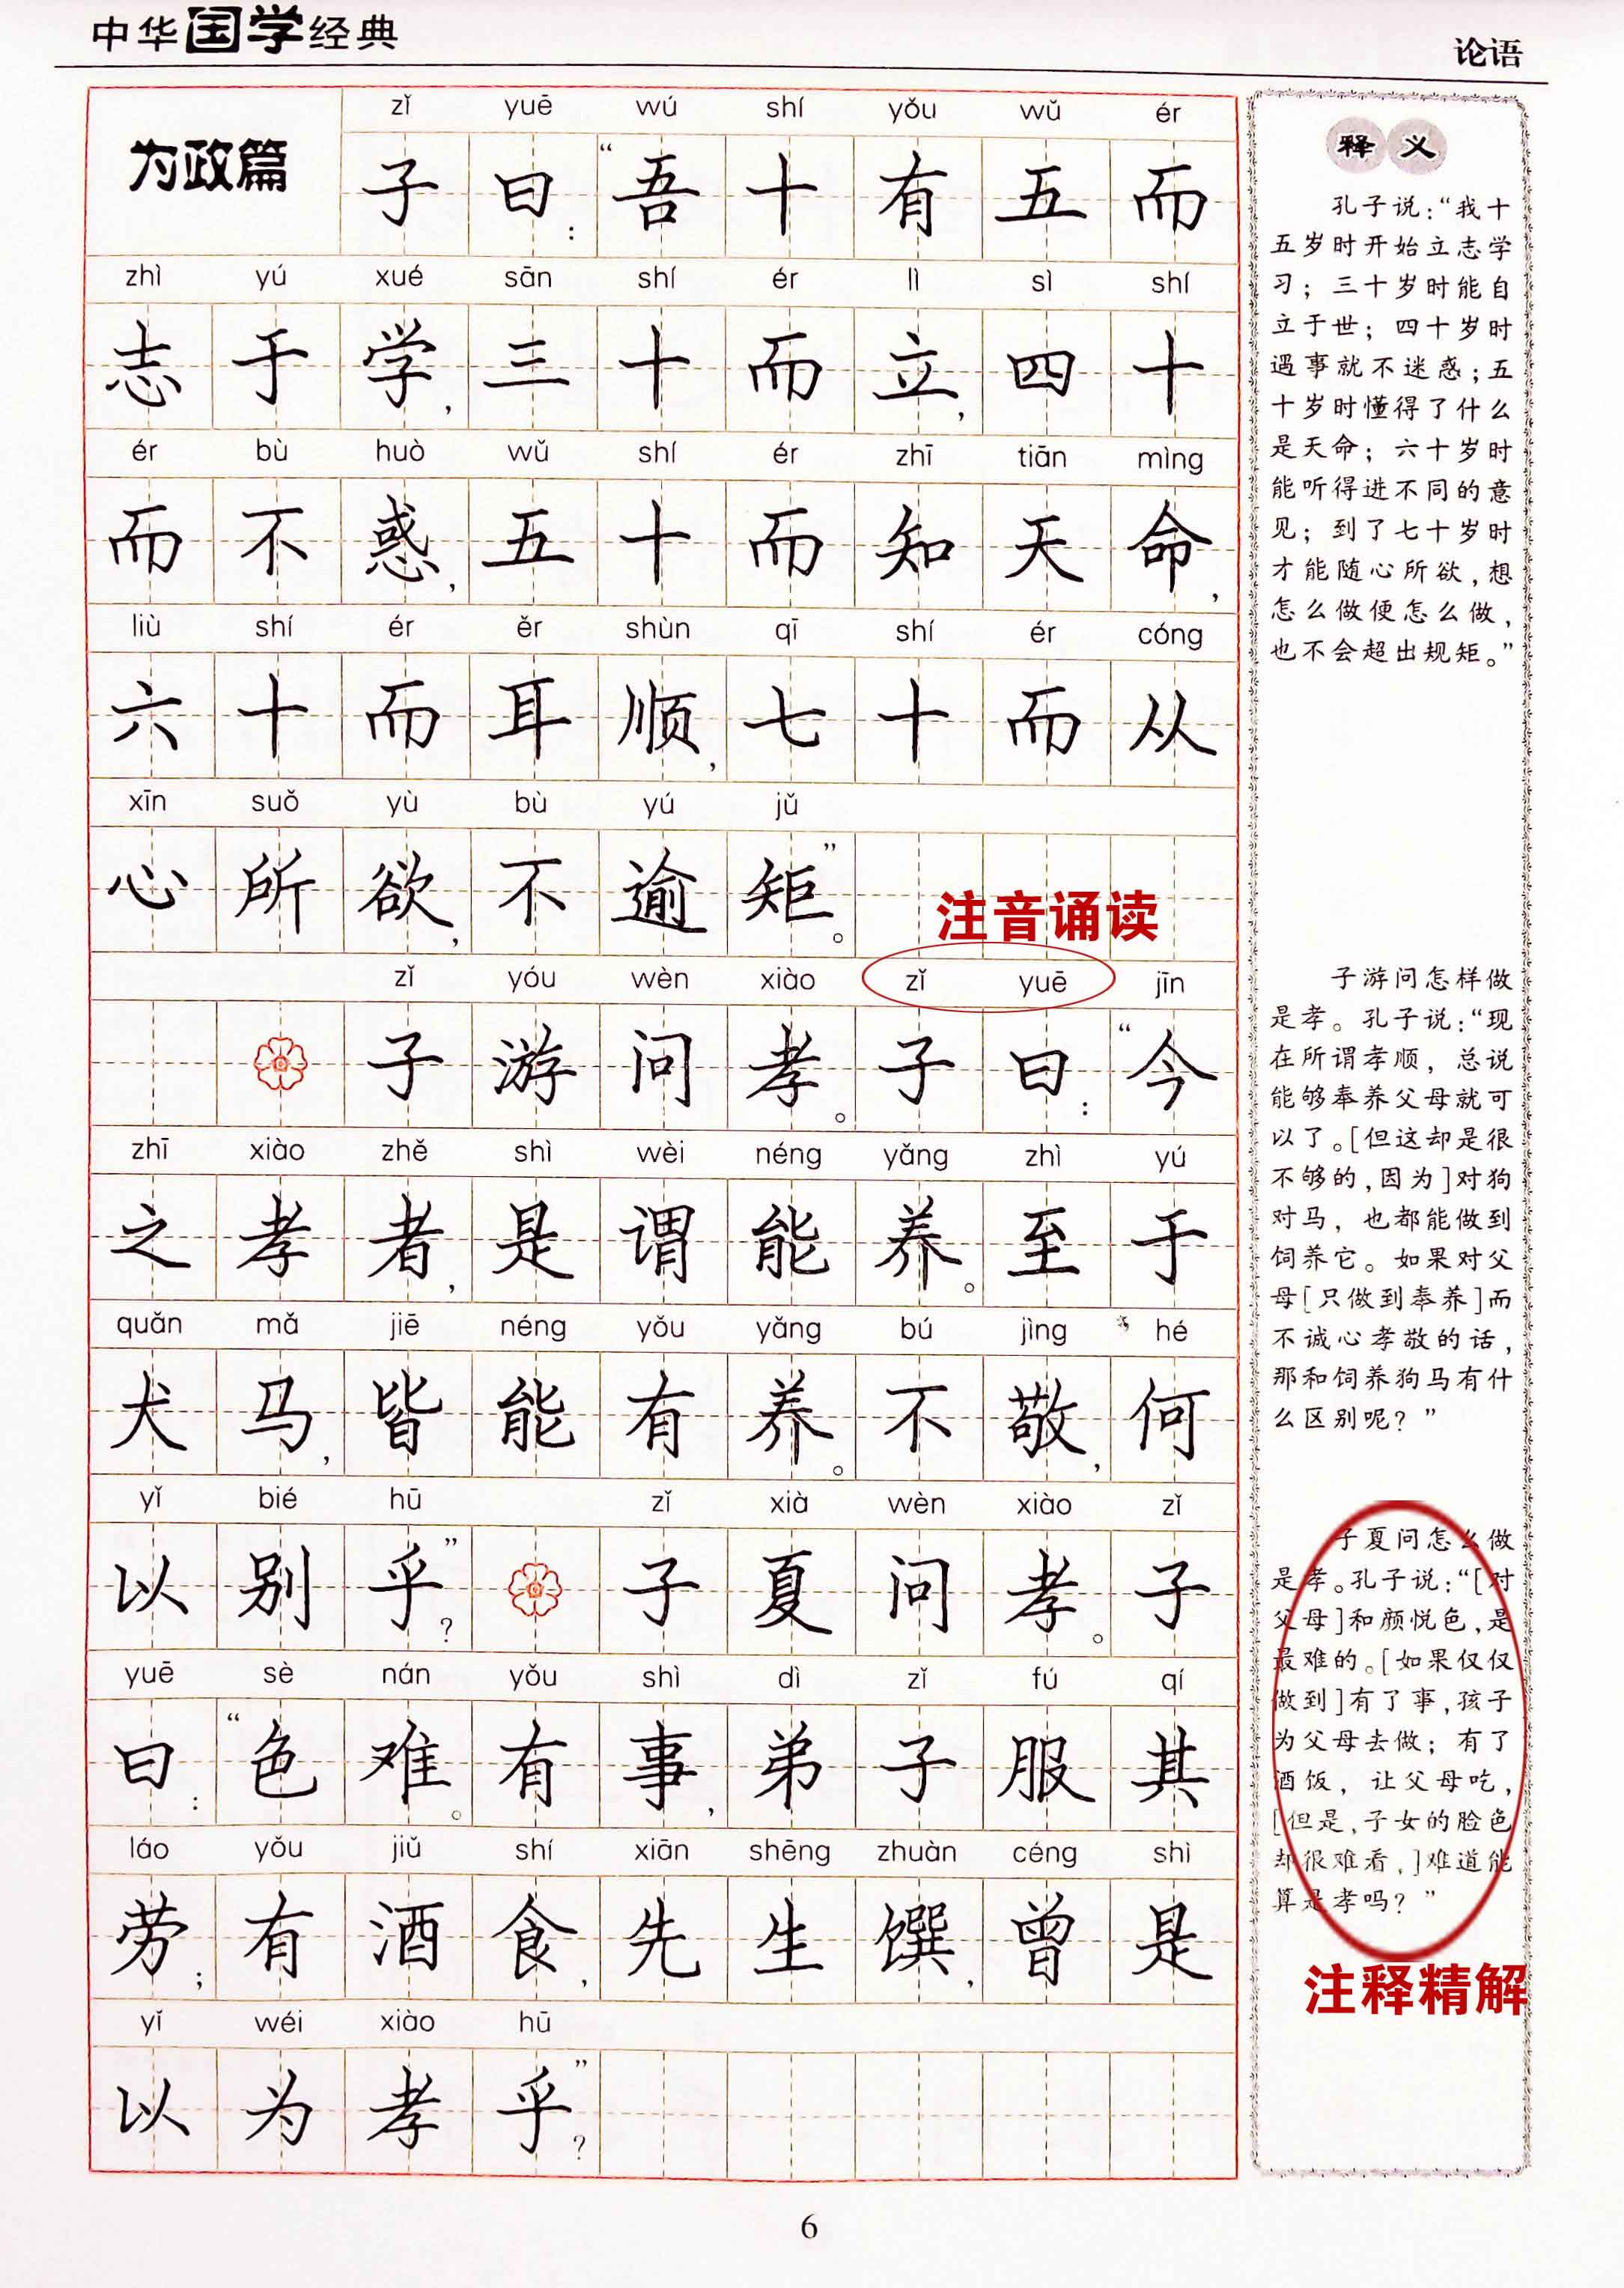 中华国学经典
论语
为政篇
zǐ yuē wú shí yǒu wǔ ér
子曰：“吾十有五而
zhì yú xué sān shí ér lì sì shí
志于学，三十而立，四十
ér bù huò wǔ shí ér zhī tiān mìng
而不惑，五十而知天命，
liù shí ér ěr shùn qī shí ér cóng
六十而耳顺，七十而从
xīn suǒ yù bù yú jǔ
心所欲，不逾矩。”
注音诵读
zǐ yóu wèn xiào zǐ yuē jīn
子游问孝。子曰：“今
zhī xiào zhě shì wèi néng yǎng zhì yú
之孝者，是谓能养。至于
quǎn mǎ jiē néng yǒu yǎng bú jìng hé
犬马，皆能有养。不敬，何
yǐ bié hū zǐ xià wèn xiào zǐ
以别乎？”子夏问孝。子
yuē sè nán yǒu shì dì zǐ fú qí
曰：“色难。有事，弟子服其
láo yǒu jiǔ shí xiān shēng zhuàn céng shì
劳；有酒食，先生馔，曾是
yǐ wéi xiào hū
以为孝乎？”
释义
孔子说：“我十
五岁时开始立志学
习；三十岁时能自
立于世；四十岁时
遇事就不迷惑；五
十岁时懂得了什么
是天命；六十岁时
能听得进不同的意
见；到了七十岁时
才能随心所欲，想
怎么做便怎么做，
也不会超出规矩。”
子游问怎样做
是孝。孔子说：“现
在所谓孝顺，总说
能够奉养父母就可
以了。[但这却是很
不够的，因为]对狗
对马，也都能做到
饲养它。如果对父
母[只做到奉养]而
不诚心孝敬的话，
那和饲养狗马有什
么区别呢？”
子夏问怎么做
是孝。孔子说：“[对
父母]和颜悦色，是
最难的。[如果仅仅
做到]有了事，孩子
为父母去做；有了
酒饭，让父母吃，
[但是，子女的脸色
却很难看，]难道能
算是孝吗？”
注释精解
6